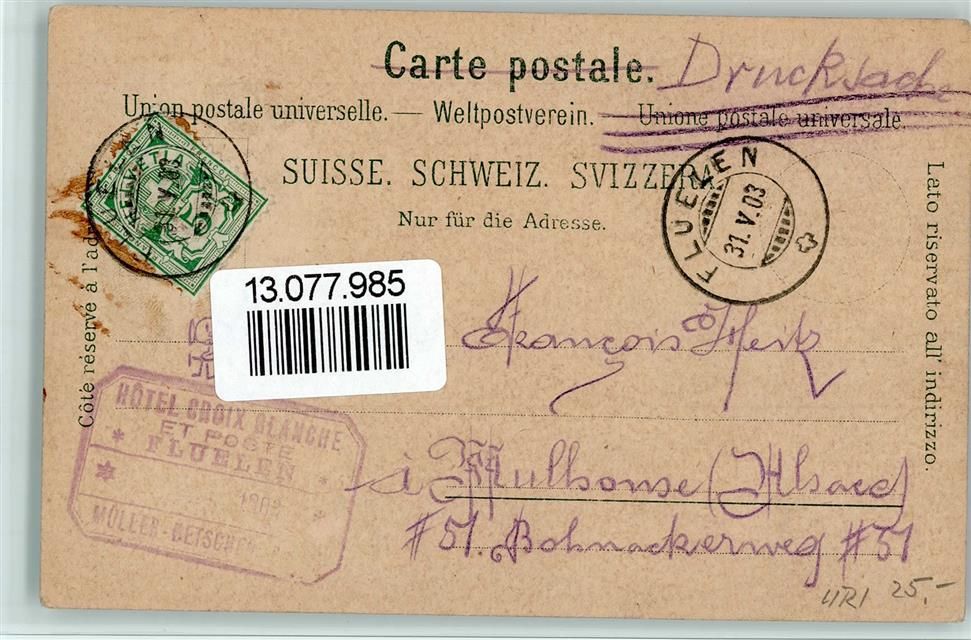 Carte postale. Drucksache
Union postale universelle. — Weltpostverein. — Unione postale universale
SUISSE. SCHWEIZ. SVIZZERA.
Nur für die Adresse.
HELVETIA
FLUELEN
31.V.03
FLUELEN
31.V.03
Côté réservé à l'adr
Lato riservato all' indirizzo.
13.077.985
François Hertz
à Mulhouse (Alsace)
#51. Bohnackerweg #51
HÔTEL CROIX BLANCHE
ET POSTE
FLUELEN
MÜLLER-
URI 25.-